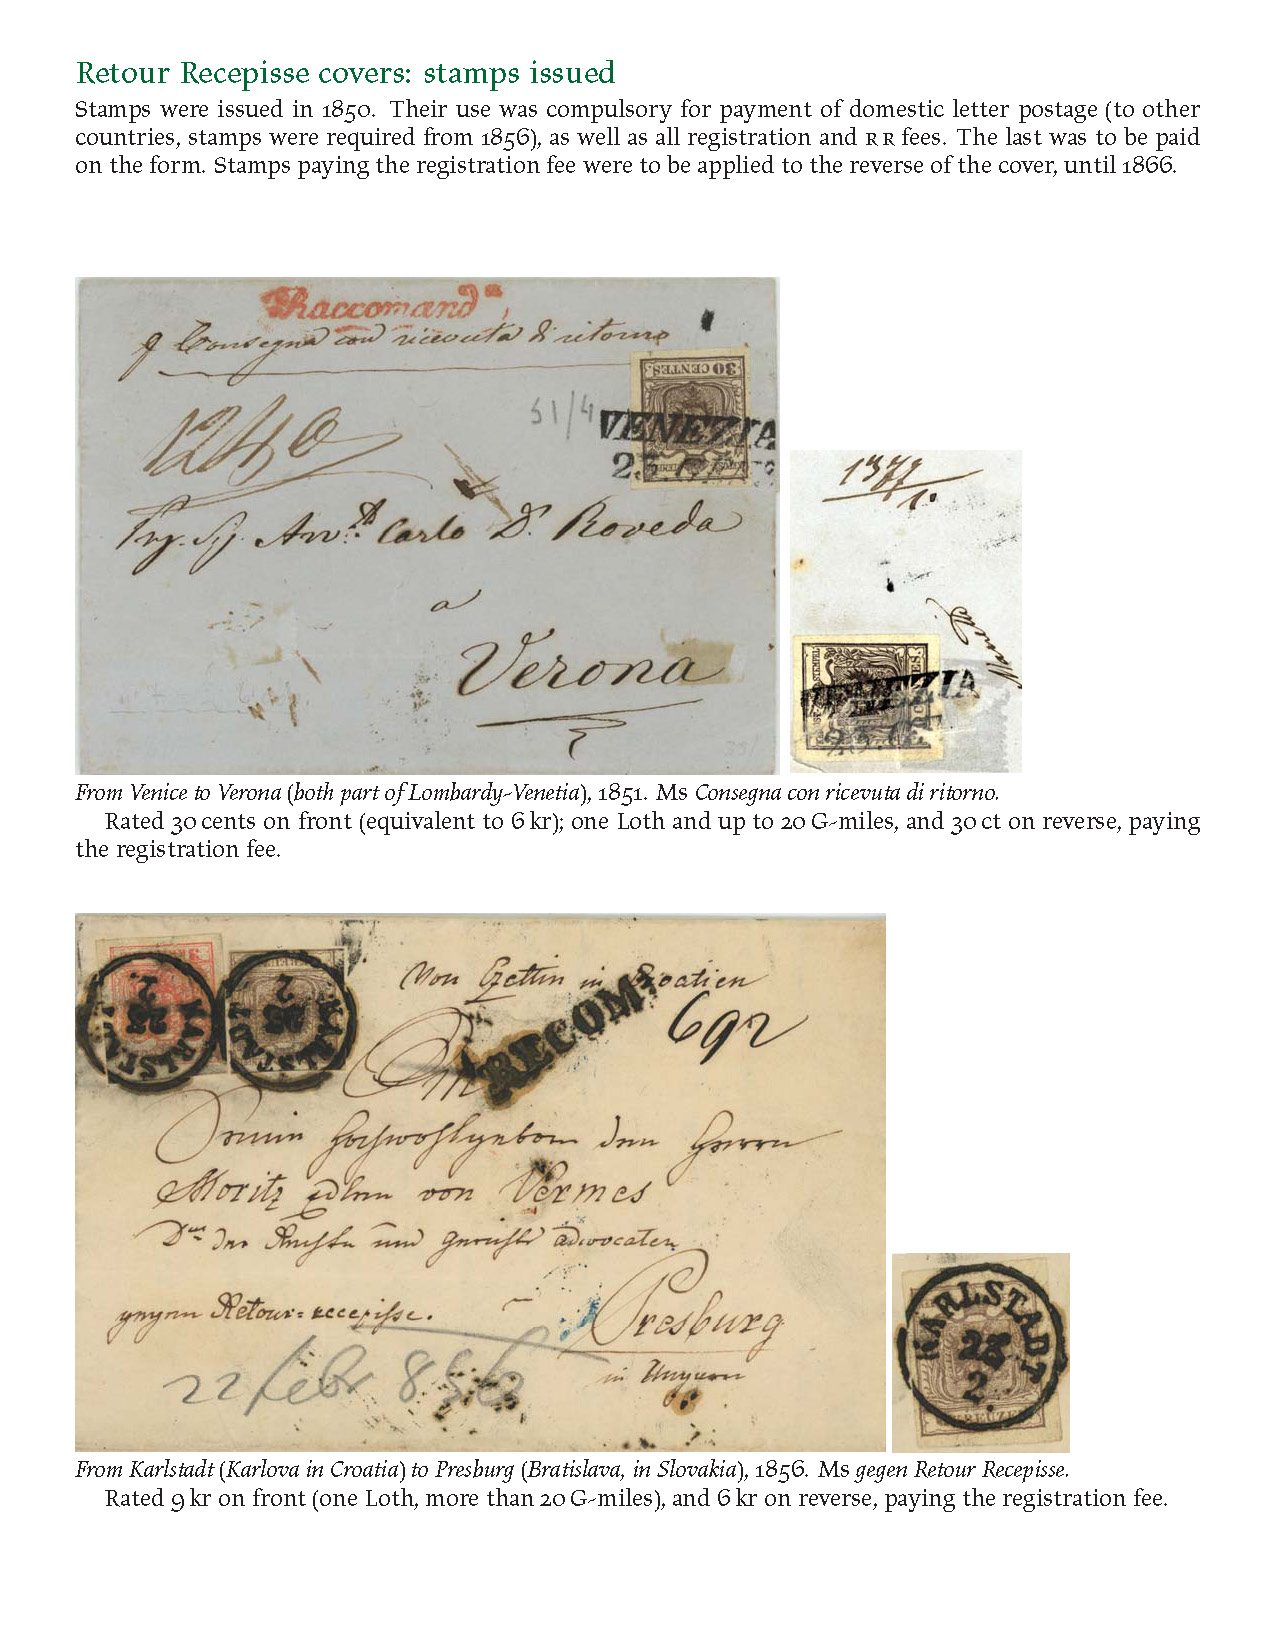 Retour Recepisse covers: stamps issued
Stamps were issued in 1850. Their use was compulsory for payment of domestic letter postage (to other
countries, stamps were required from 1856), as well as all registration and RR fees. The last was to be paid
on the form. Stamps paying the registration fee were to be applied to the reverse of the cover, until 1866.
Raccomandᵃ
Consegna con ricevuta di ritorno
30 CENTES.
51/4
VENEZIA
1240
Carlo Dr. Roveda
a
Verona
1377
VENEZIA
From Venice to Verona (both part of Lombardy-Venetia), 1851. Ms Consegna con ricevuta di ritorno.
Rated 30 cents on front (equivalent to 6 kr); one Loth and up to 20 G-miles, and 30 ct on reverse, paying
the registration fee.
Von Czettin in Croatien
RECOM.
692
KARLSTADT
KARLSTADT
Seiner Hochwohlgeboren dem Herrn
Moritz Edlen von Vermes
Dʳ der Rechte und Gerichts advocaten
gegen Retour-recepisse.
Presburg
in Ungarn
22 febr 856
KARLSTADT
23
2.
From Karlstadt (Karlova in Croatia) to Presburg (Bratislava, in Slovakia), 1856. Ms gegen Retour Recepisse.
Rated 9 kr on front (one Loth, more than 20 G-miles), and 6 kr on reverse, paying the registration fee.